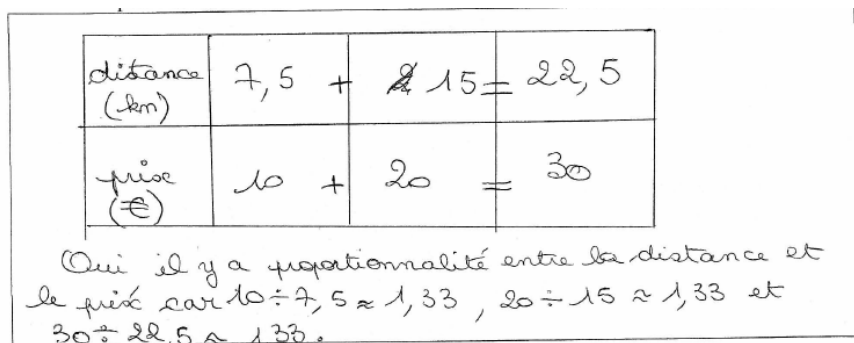 distance 7,5 + 15 = 22,5
(km)
prix 10 + 20 = 30
(€)
Oui il y a proportionnalité entre la distance et
le prix car 10 ÷ 7,5 ≈ 1,33 , 20 ÷ 15 ≈ 1,33 et
30 ÷ 22,5 ≈ 1,33.